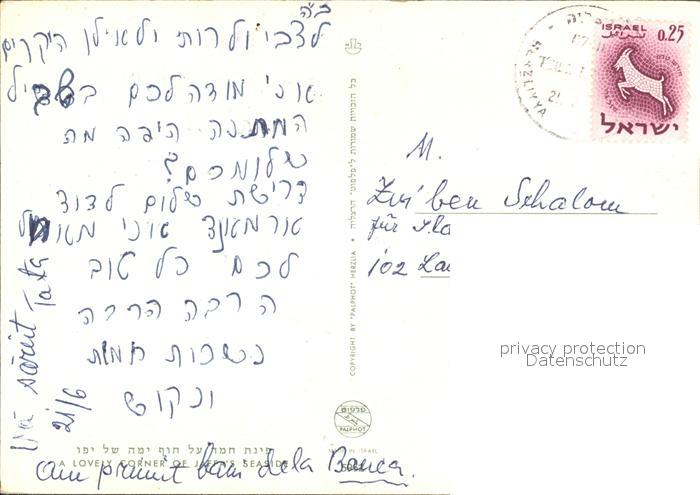 ב"ה
לצבי ולרות ולאילן היקרים
אני מודה לכם בשביל
המתנה היפה מה
שלומכם?
דרישת שלום לצוד
אורמאנד אני מאחל
לכם כל טוב
הרבה הרבה
נשיקות חמות
Vă sărută
Tata
21/6
פינת חמד על חוף ימה של יפו
A LOVELY CORNER OF JAFFA'S SEASIDE
am primit bani dela Banca.
כל הזכויות שמורות ל"פלפוט" הרצליה
COPYRIGHT BY "PALPHOT" HERZLIA
פלפוט
PALPHOT
MADE IN ISRAEL
HERZLIYYA
ISRAEL
0.25
ישראל
M.
Zvi ben Schalom
für
102
privacy protection
Datenschutz